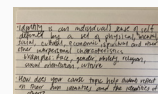 Identity is an individual's sense of self
defined by a set of physical, mental,
social, cultural, economic, spiritual and
other interpersonal characteristics
Examples: race, gender, ethnicity, religion,
sexual orientation, culture
How does your comic topic help humans reflect
on their own identities and the identities of
others